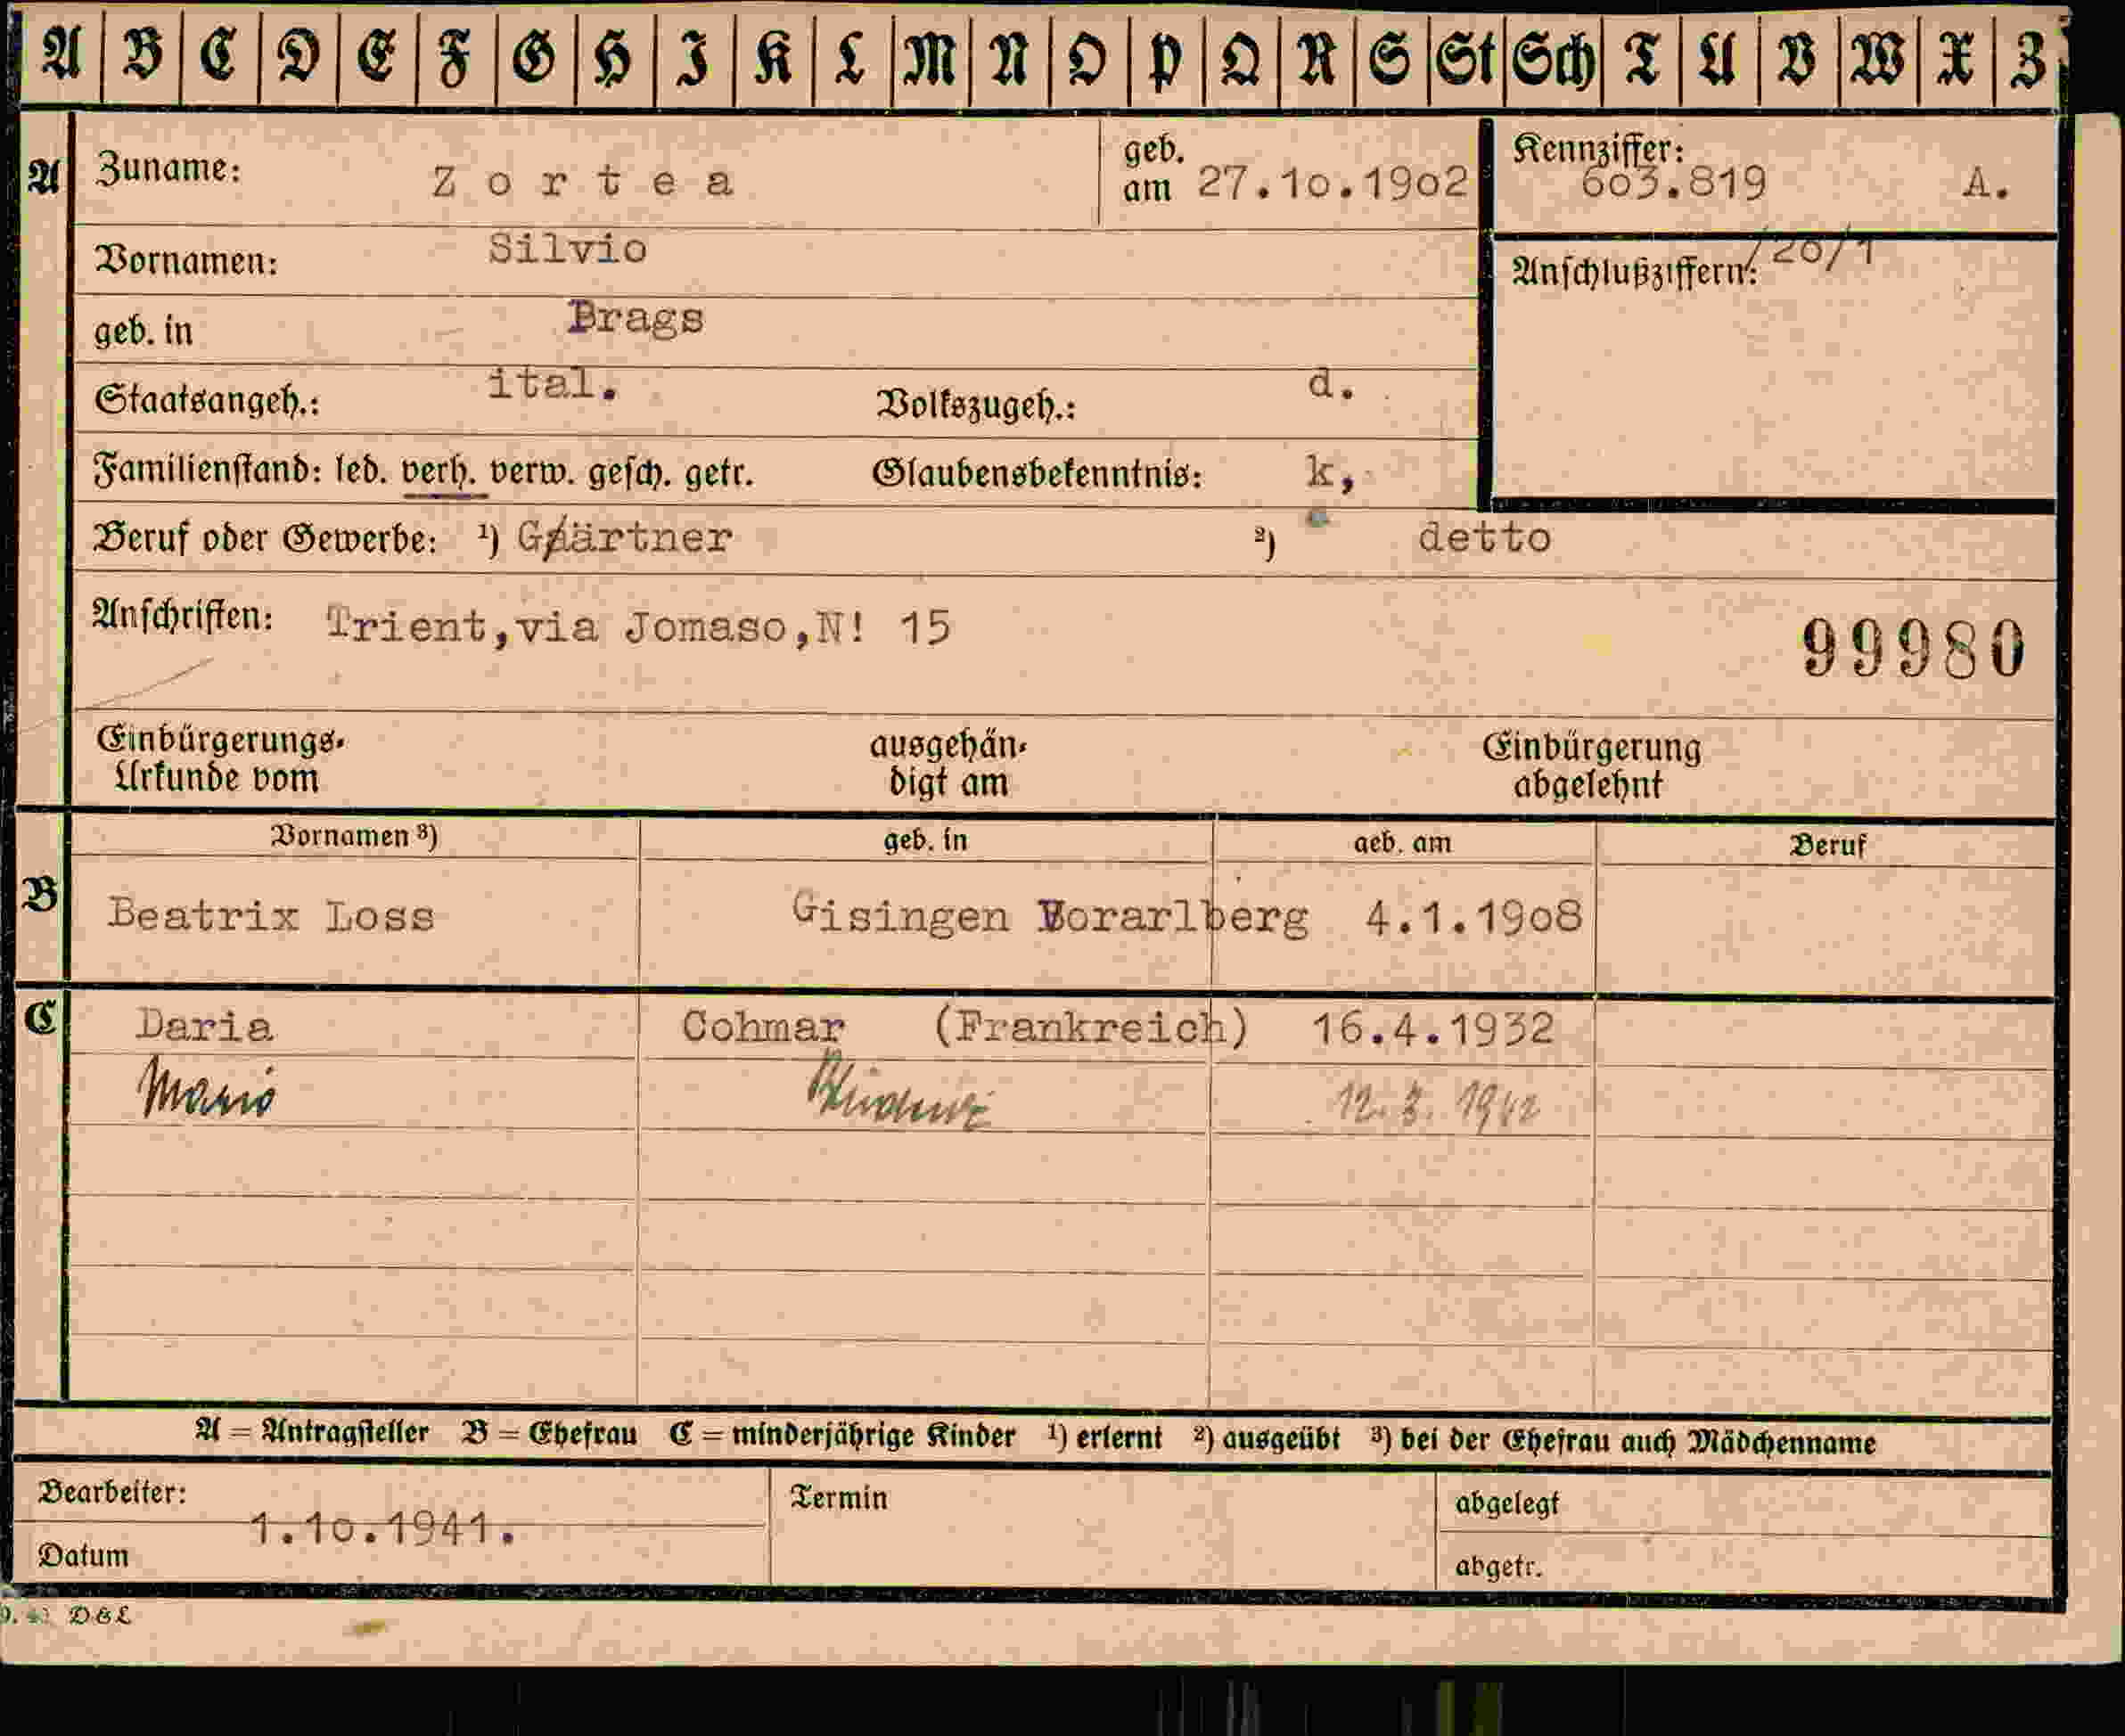 A B C D E F G H I K L M N O P Q R S St Sch T U V W X Z
A Zuname: Zortea geb. am 27.10.1902 Kennziffer: 603.819 A.
Vornamen: Silvio Anschlußziffern: /20/1
geb. in Brags
Staatsangeh.: ital. Volkszugeh.: d.
Familienstand: led. verh. verw. gesch. getr. Glaubensbekenntnis: k,
Beruf oder Gewerbe: ¹) Gäärtner ²) detto
Anschriften: Trient,via Jomaso,N! 15
99980
Einbürgerungs-Urkunde vom ausgehän-digt am Einbürgerung abgelehnt
Vornamen ³) geb. in geb. am Beruf
B Beatrix Loss Gisingen Vorarlberg 4.1.1908
C Daria Cohmar (Frankreich) 16.4.1932
Mario 12. 3. 1942
A = Antragsteller B = Ehefrau C = minderjährige Kinder ¹) erlernt ²) ausgeübt ³) bei der Ehefrau auch Mädchenname
Bearbeiter: Termin abgelegt
1.10.1941.
Datum abgetr.
D&L